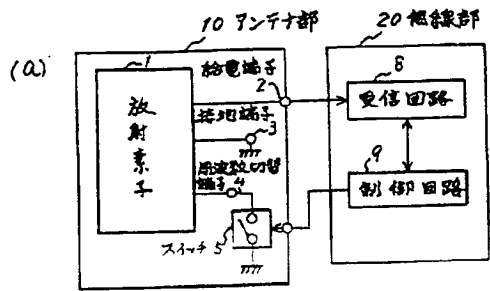 (a)
10 アンテナ部
20 無線部
1
放射素子
給電端子
2
接地端子
3
周波数切替
端子 4
スイッチ 5
8
受信回路
9
制御回路